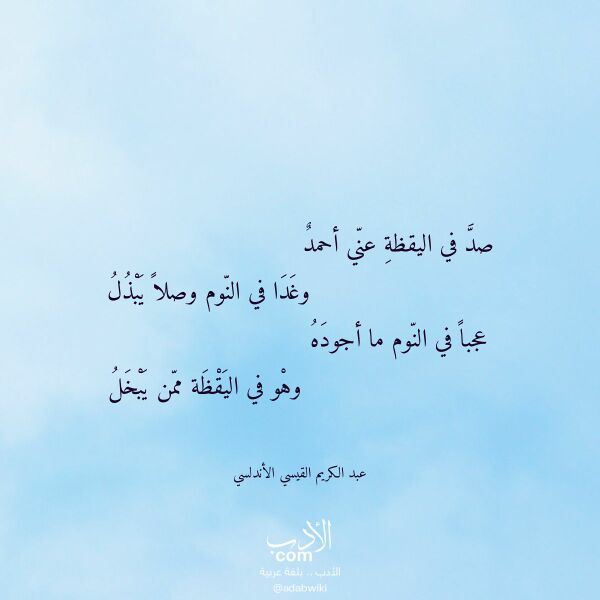 صدَّ في اليقظةِ عنّي أحمدٌ
وغَدَا في النّوم وصلاً يَبْذُلُ
عجباً في النّوم ما أجودَهُ
وهْو في اليَقْظَة ممّن يَبْخَلُ
عبد الكريم القيسي الأندلسي
الأدب
com
الأدب .. بلغة عربية
@adabwiki